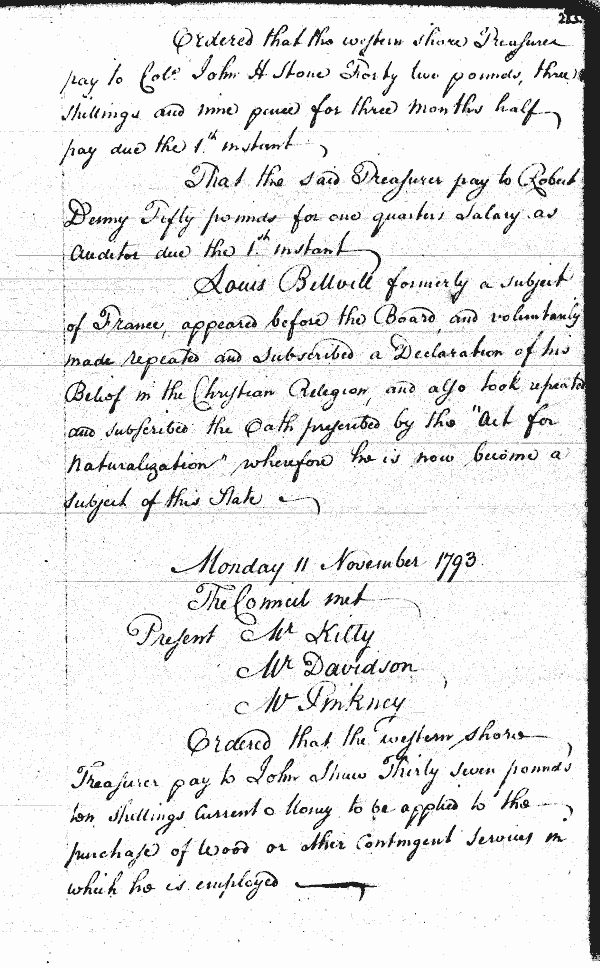 213
Ordered that the western shore Treasurer
pay to Col.o John H Stone Forty two pounds, three
shillings and nine pence for three months half
pay due the 1st instant
That the said Treasurer pay to Robert
Denny Fifty pounds for one quarters Salary as
Auditor due the 1st instant
Louis Bellvill formerly a subject
of France, appeared before the Board, and voluntarily
made repeated and subscribed a Declaration of his
Belief in the Christian Religion, and also took repeated
and subscribed the Oath prescribed by the "Act for
Naturalization" wherefore he is now become a
subject of this State
Monday 11 November 1793.
The Council met
Present Mr Kilty
Mr Davidson
Mr Pinkney
Ordered that the western shore
Treasurer pay to John Shaw Thirty seven pounds
ten shillings Current Money to be applied to the
purchase of Wood or other Contingent Services in
which he is employed